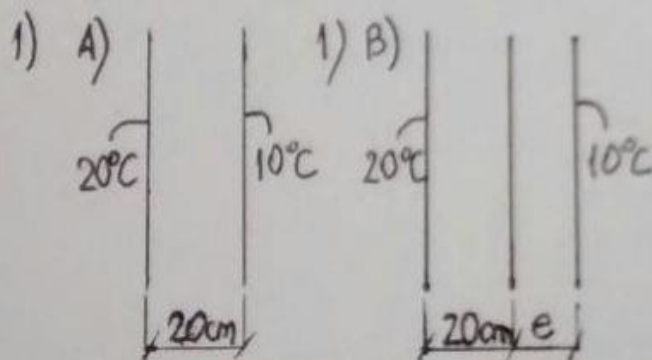 1) A)
20°C 10°C
20cm
1) B)
20°C 10°C
20cm e